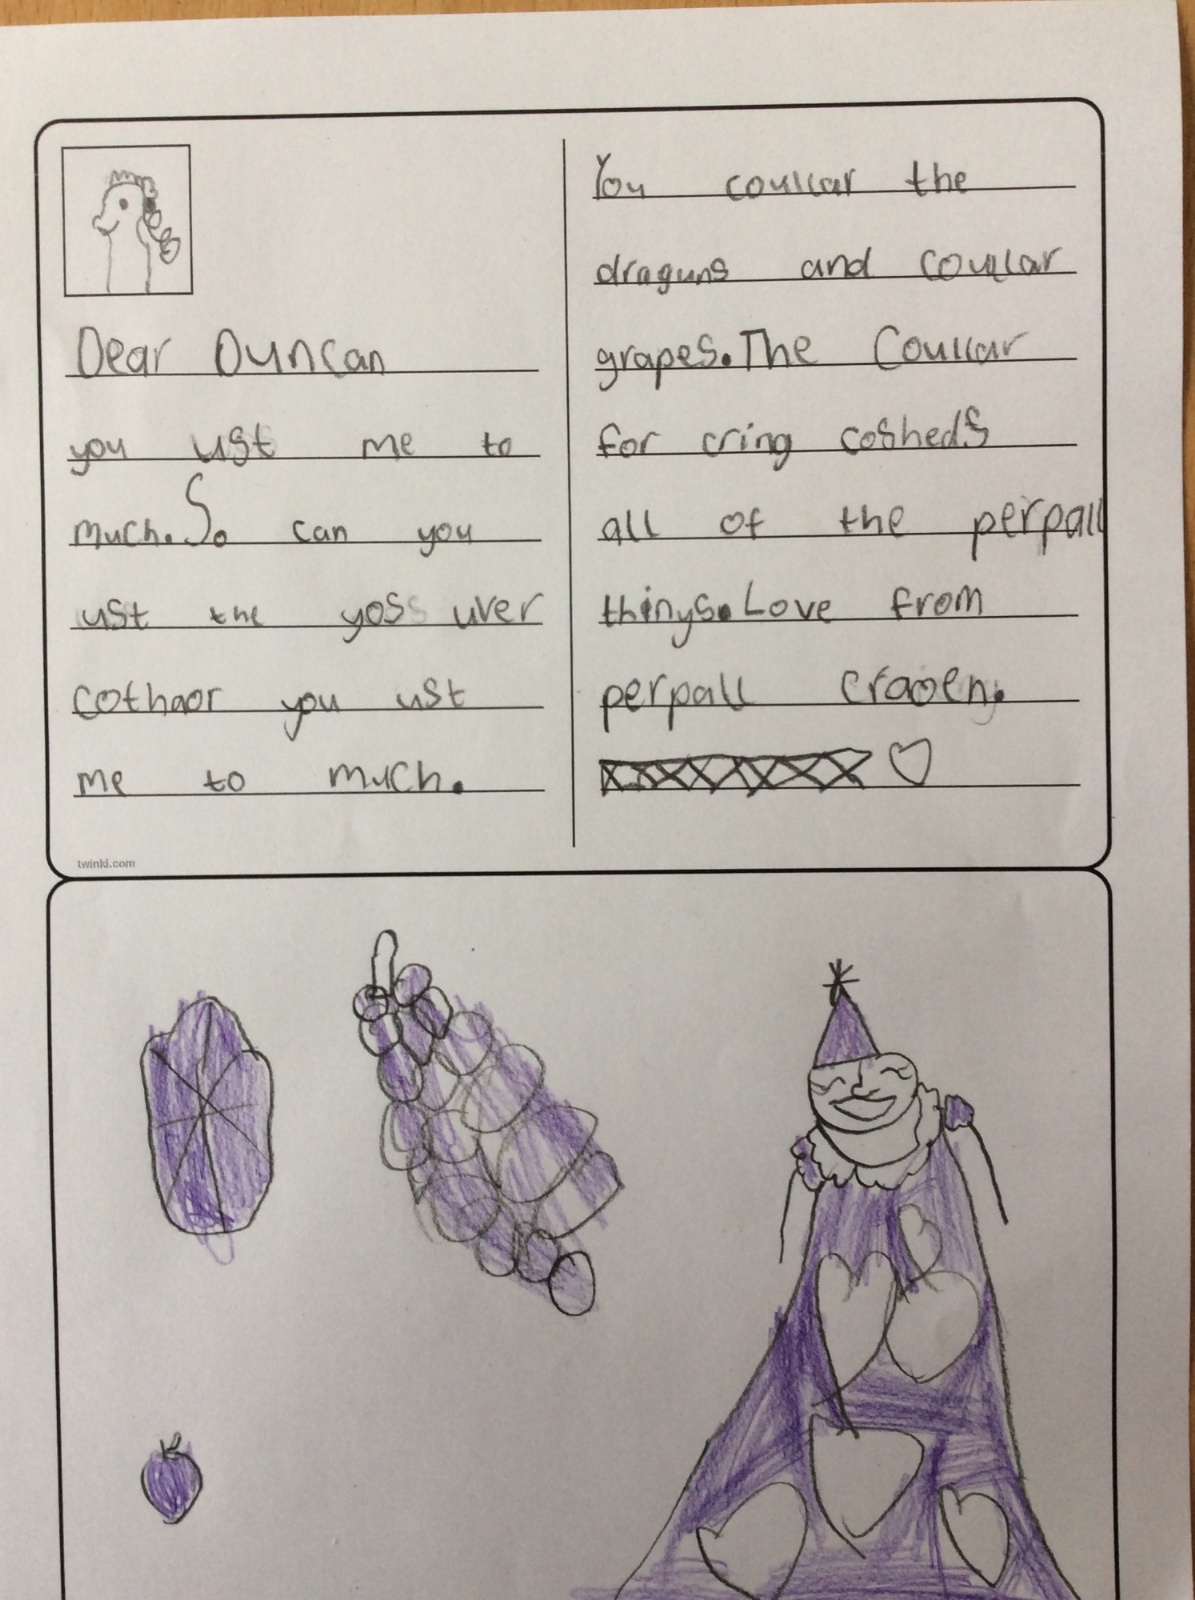 Dear Duncan
you ust me to
much. So can you
ust the yoss uver
cothaor you ust
me to much.
twinkl.com
You coullar the
draguns and coullar
grapes. The Coullar
for cring cosheds
all of the perpall
thinys. Love from
perpall craoen.